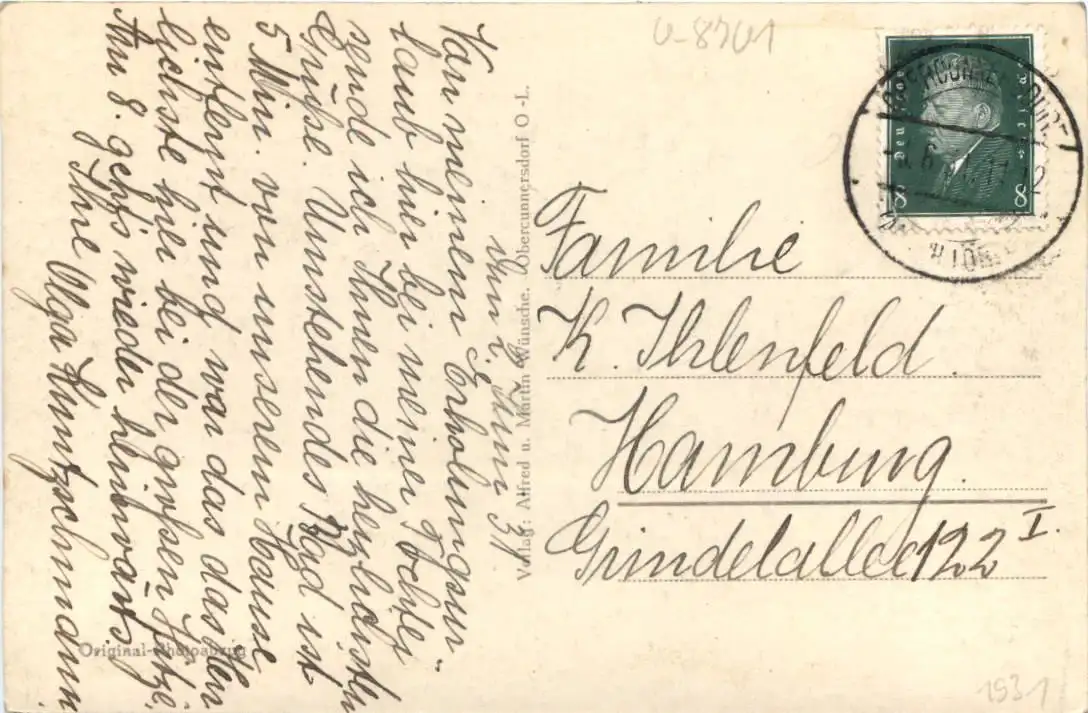 U-8701
Deutsches Reich
8 8
den 5. Juni 31
Von meinem Erholungsur-
laub hier bei meiner Tochter
sende ich Ihnen die herzlichsten
Grüße. Umstehendes Bad ist
5 Min. von unserem Hause
entfernt und war das das Herr
lichste hier bei der großen Hitze.
Am 8. geht's wieder heimwärts.
Ihre Olga Huntzschmann
Verlag: Alfred u. Martin Wünsche, Obercunnersdorf O.-L.
Familie
K. Ihlenfeld.
Hamburg.
Grindelallee 122 I.
Original-Photoabzug
1931